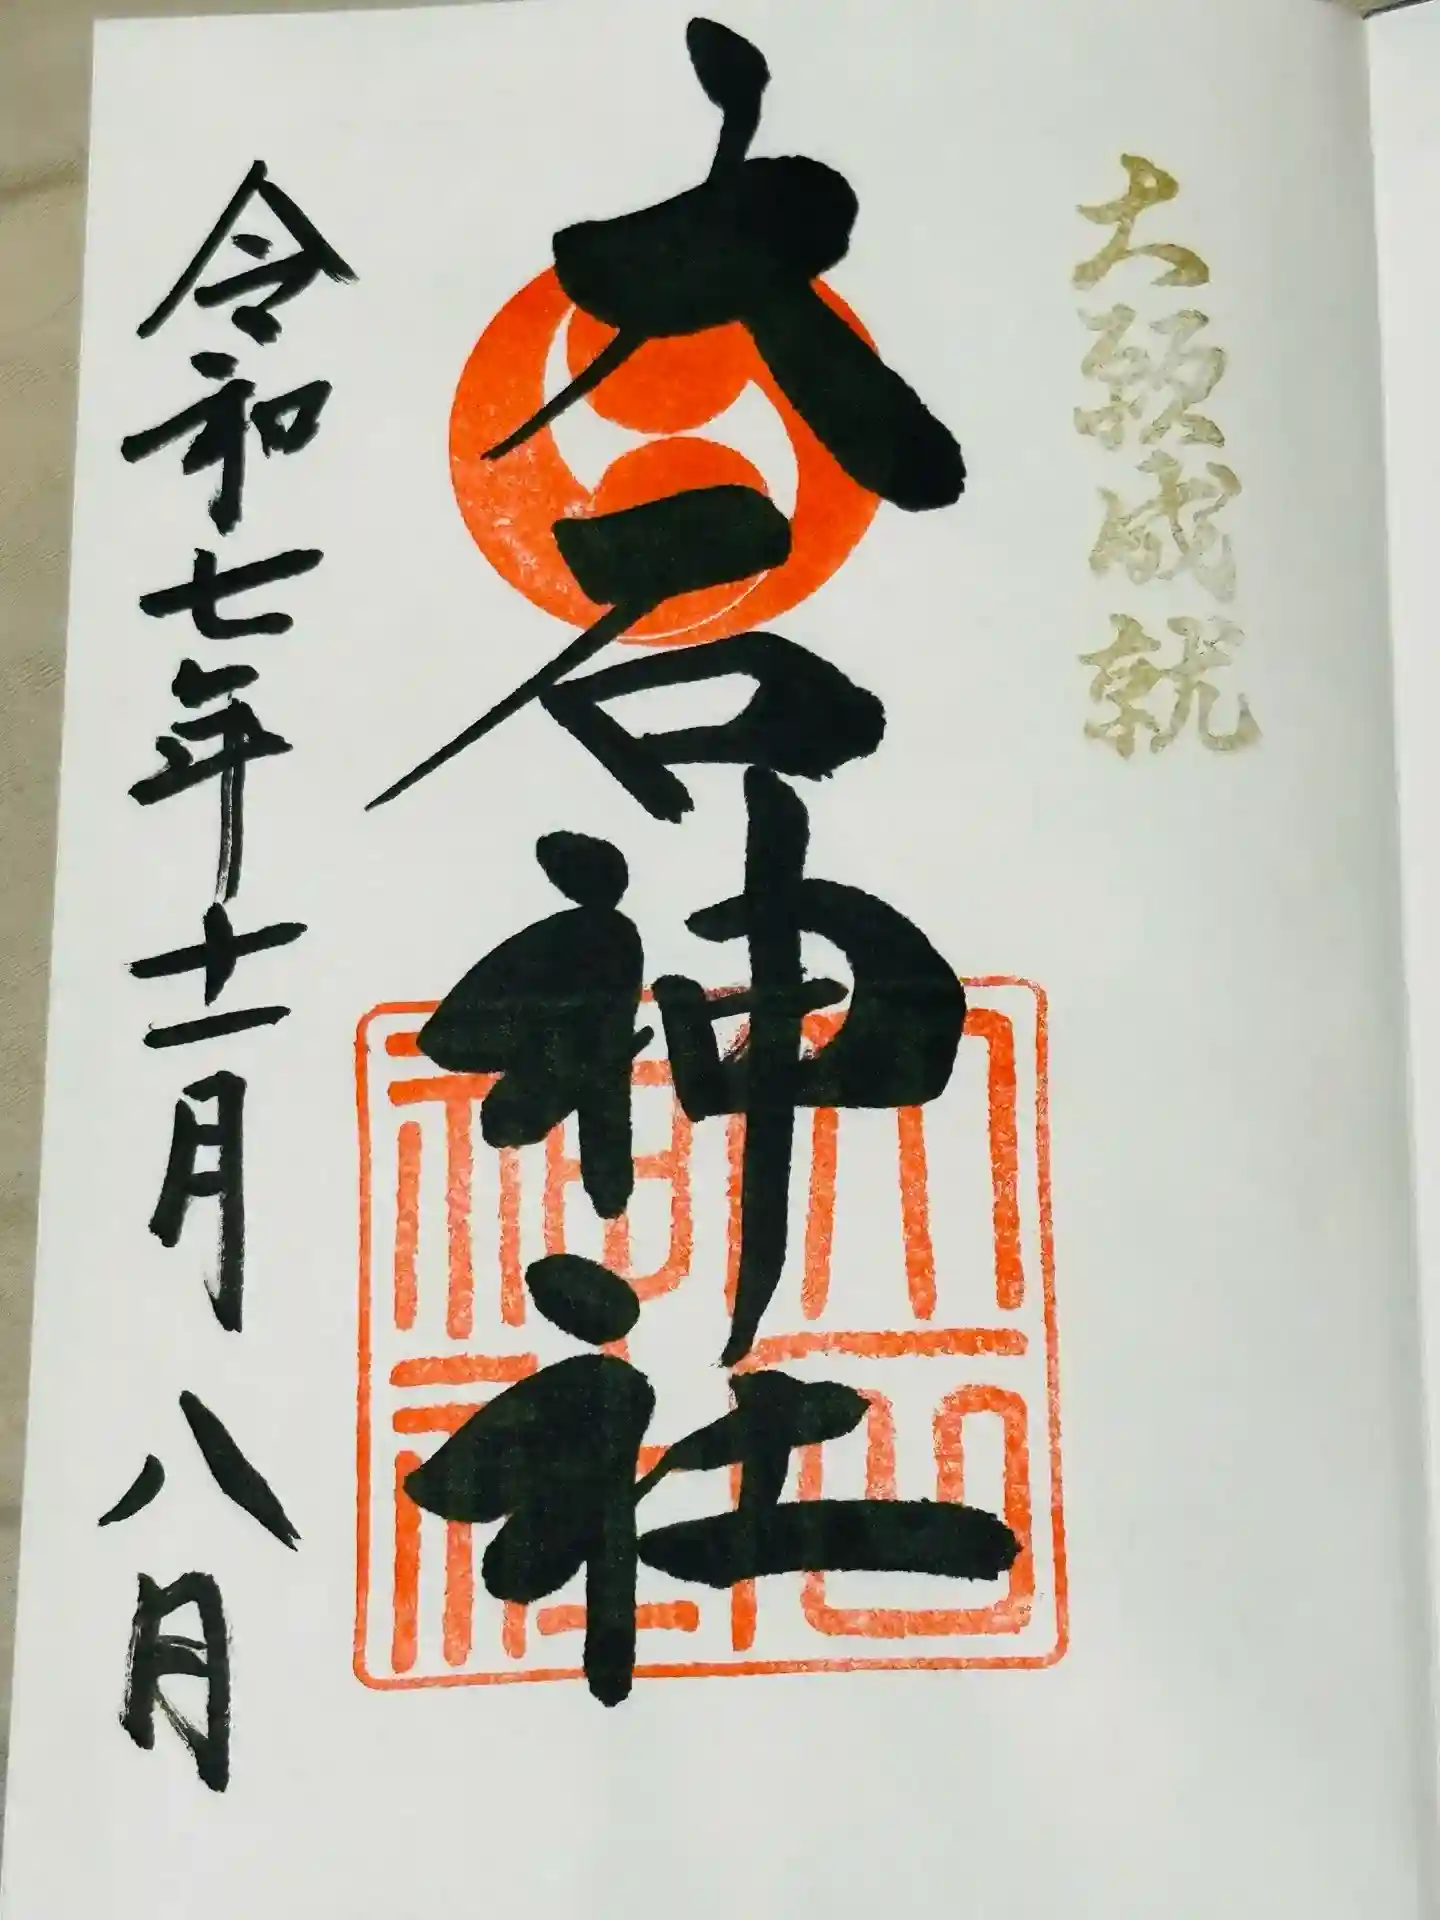 大願成就
大石神社
大石神社
令和七年十一月八日